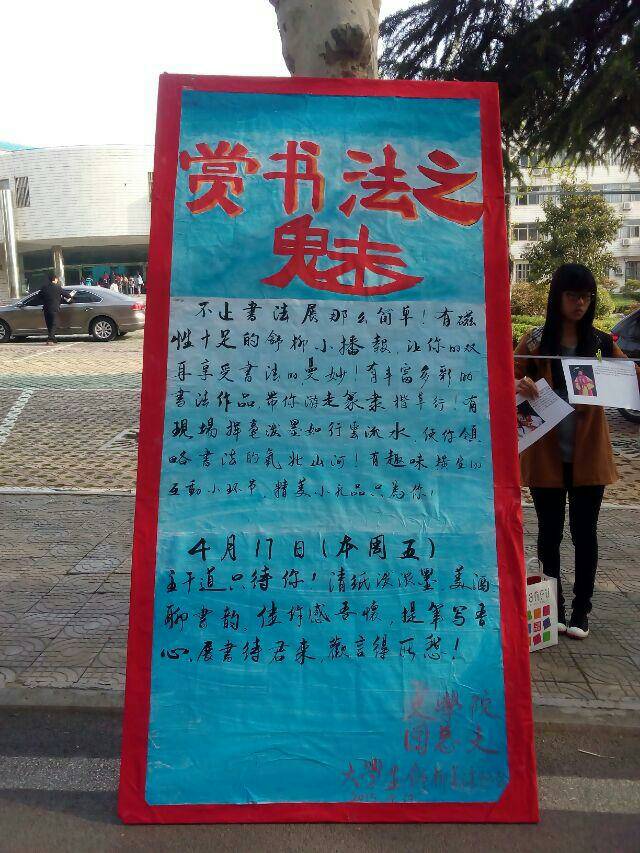 赏书法之
魅
不止書法展那么简单！有磁
性十足的舒柳小播報，让你的双
耳享受書法的曼妙！有丰富多彩的
書法作品，带你游走篆隶楷草行！有
現場揮毫潑墨如行雲流水，使你領
略書法的氣壯山河！有趣味橫生的
互動小环节，精美小礼品只為你！
4月17日（本周五）
主干道只待你！清纸淡泼墨，美酒
聊書韵。佳作感吾懷，提筆写吾
心。展書待君來，觀言得所愁！
學院
团总支
大學生